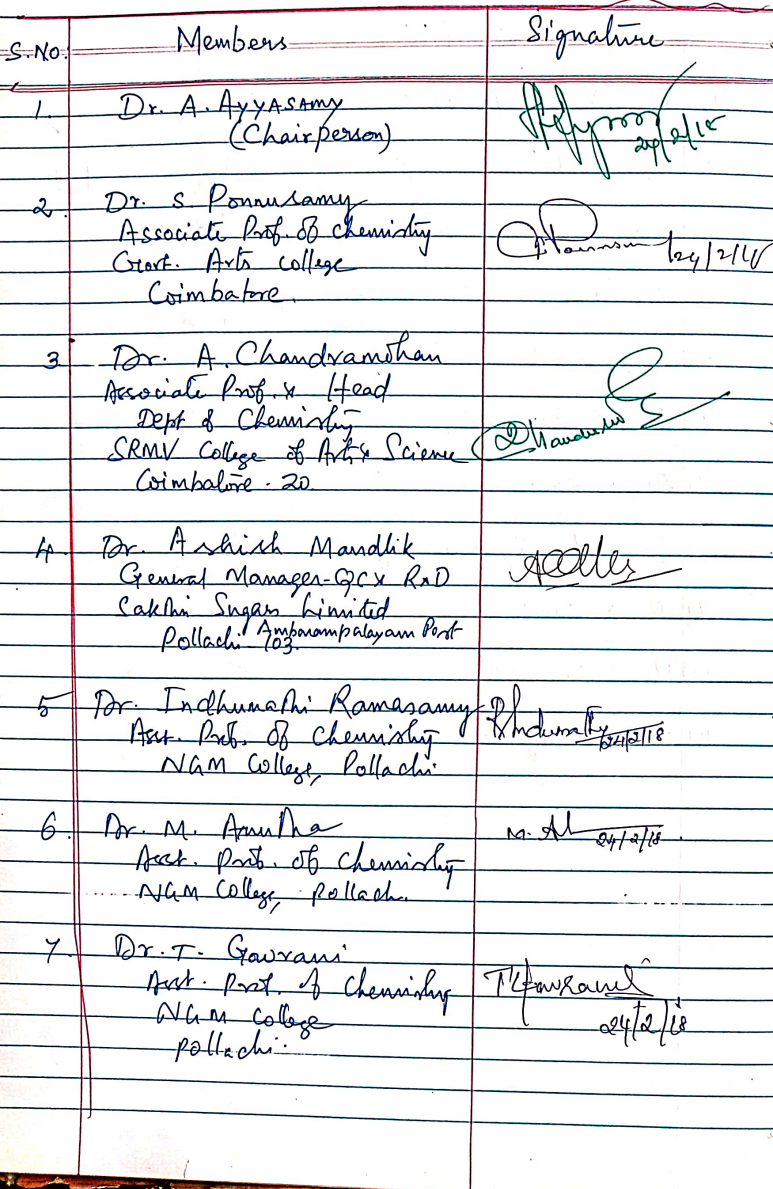 S.No. Members Signature
1. Dr. A. AyyASAMY
(Chairperson) 24/2/18
2. Dr. S Ponnusamy
Associate Prof. of Chemistry 24/2/18
Govt. Arts College
Coimbatore.
3 Dr. A. Chandramohan
Associate Prof. & Head
Dept of Chemistry
SRMV College of Arts & Science
Coimbatore - 20.
4. Dr. Ashish Mandlik
General Manager-QC & R&D
Sakthi Sugars Limited
Ambarampalayam Post
Pollachi 103.
5 Dr. Indhumathi Ramasamy
Asst. Prof. of Chemistry 24/2/18
NGM College, Pollachi
6. Dr. M. Anutha
Asst. Prof. of Chemistry 24/2/18
NGM College, Pollachi
7. Dr. T. Gowrani
Asst. Prof. of Chemistry
NGM College 24/2/18
Pollachi.